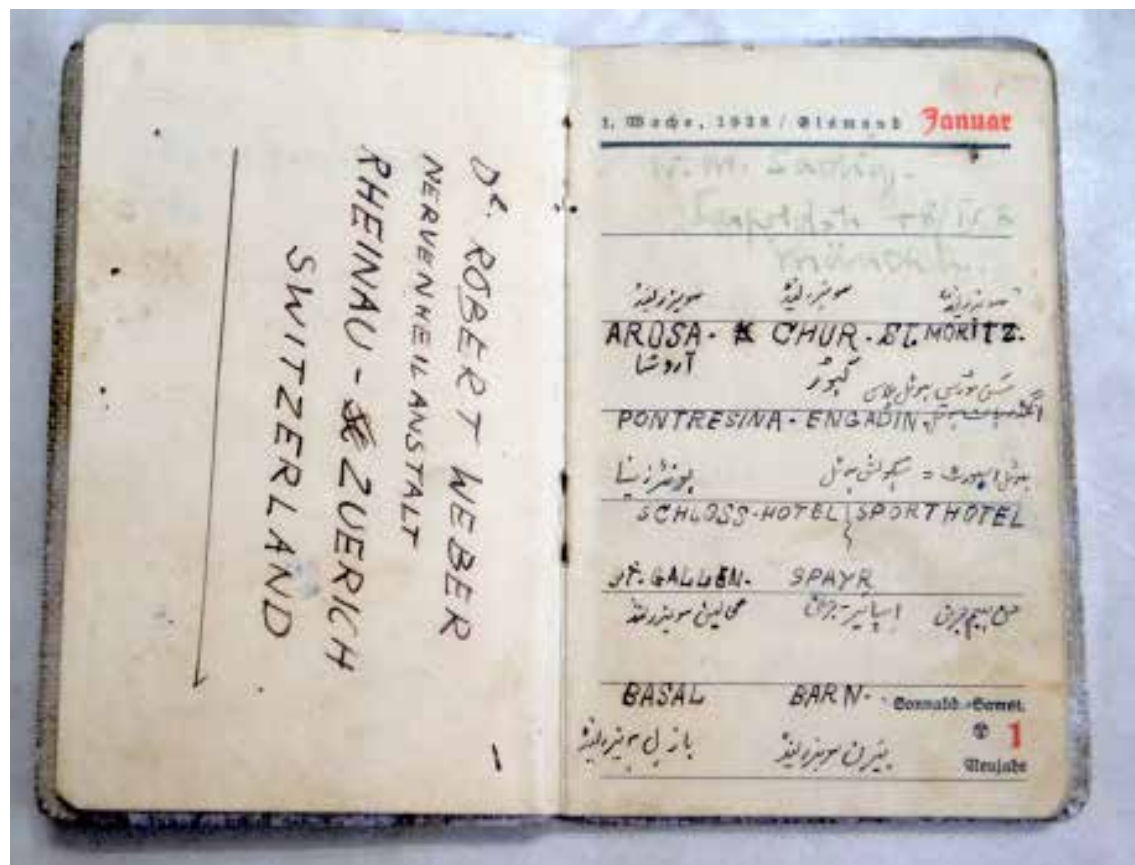 Dr. ROBERT WEBER
NERVENHEILANSTALT
RHEINAU - ZUERICH
SWITZERLAND
1. Woche, 1938 / Eismond Januar
W. M. Sadiq.
سویزرلینڈ سویزرلینڈ سویزرلینڈ
AROSA - CHUR - ST. MORITZ.
آروشا
PONTRESINA - ENGADIN
پونٹرزینا
SCHLOSS-HOTEL SPORTHOTEL
ST. GALLEN - SPAYR
گالین سویزرلینڈ اسپائیر - جرمن
BASAL BARN - Sonnabd.-Samst.
1
بازل سویزرلینڈ بیرن سویزرلینڈ Neujahr